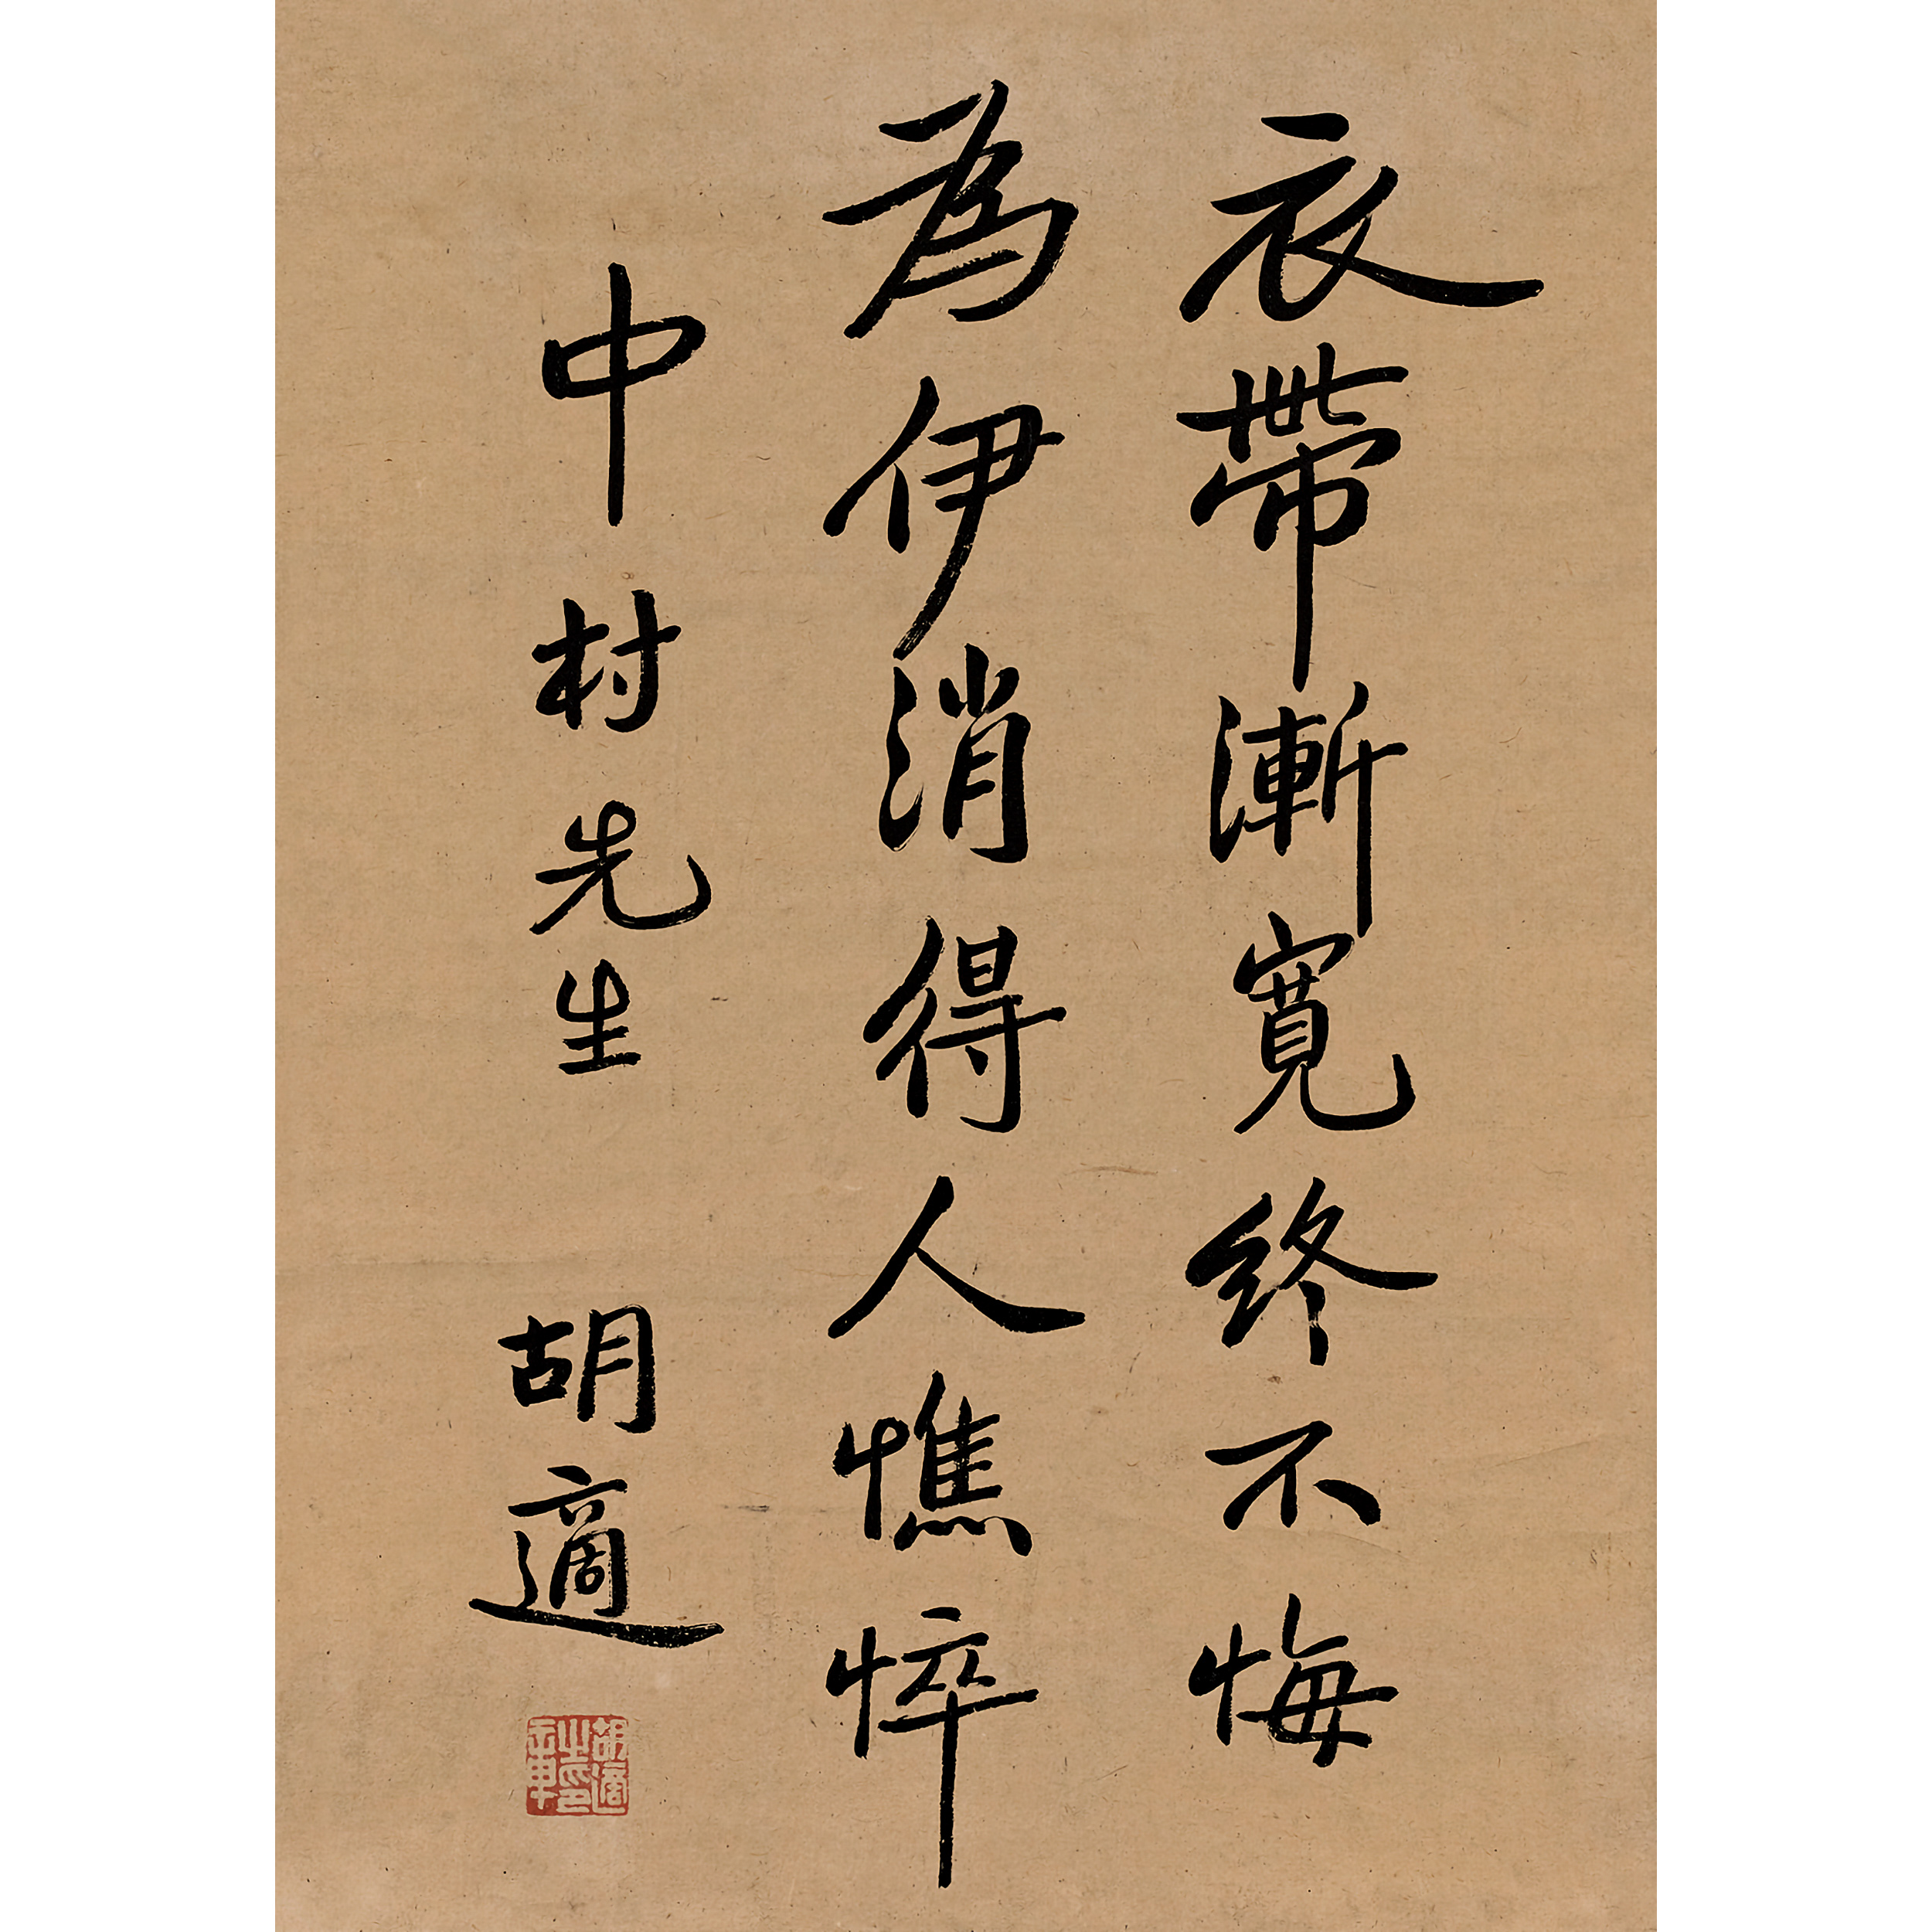 衣帶漸寬終不悔
為伊消得人憔悴
中村先生 胡適
胡適之印章